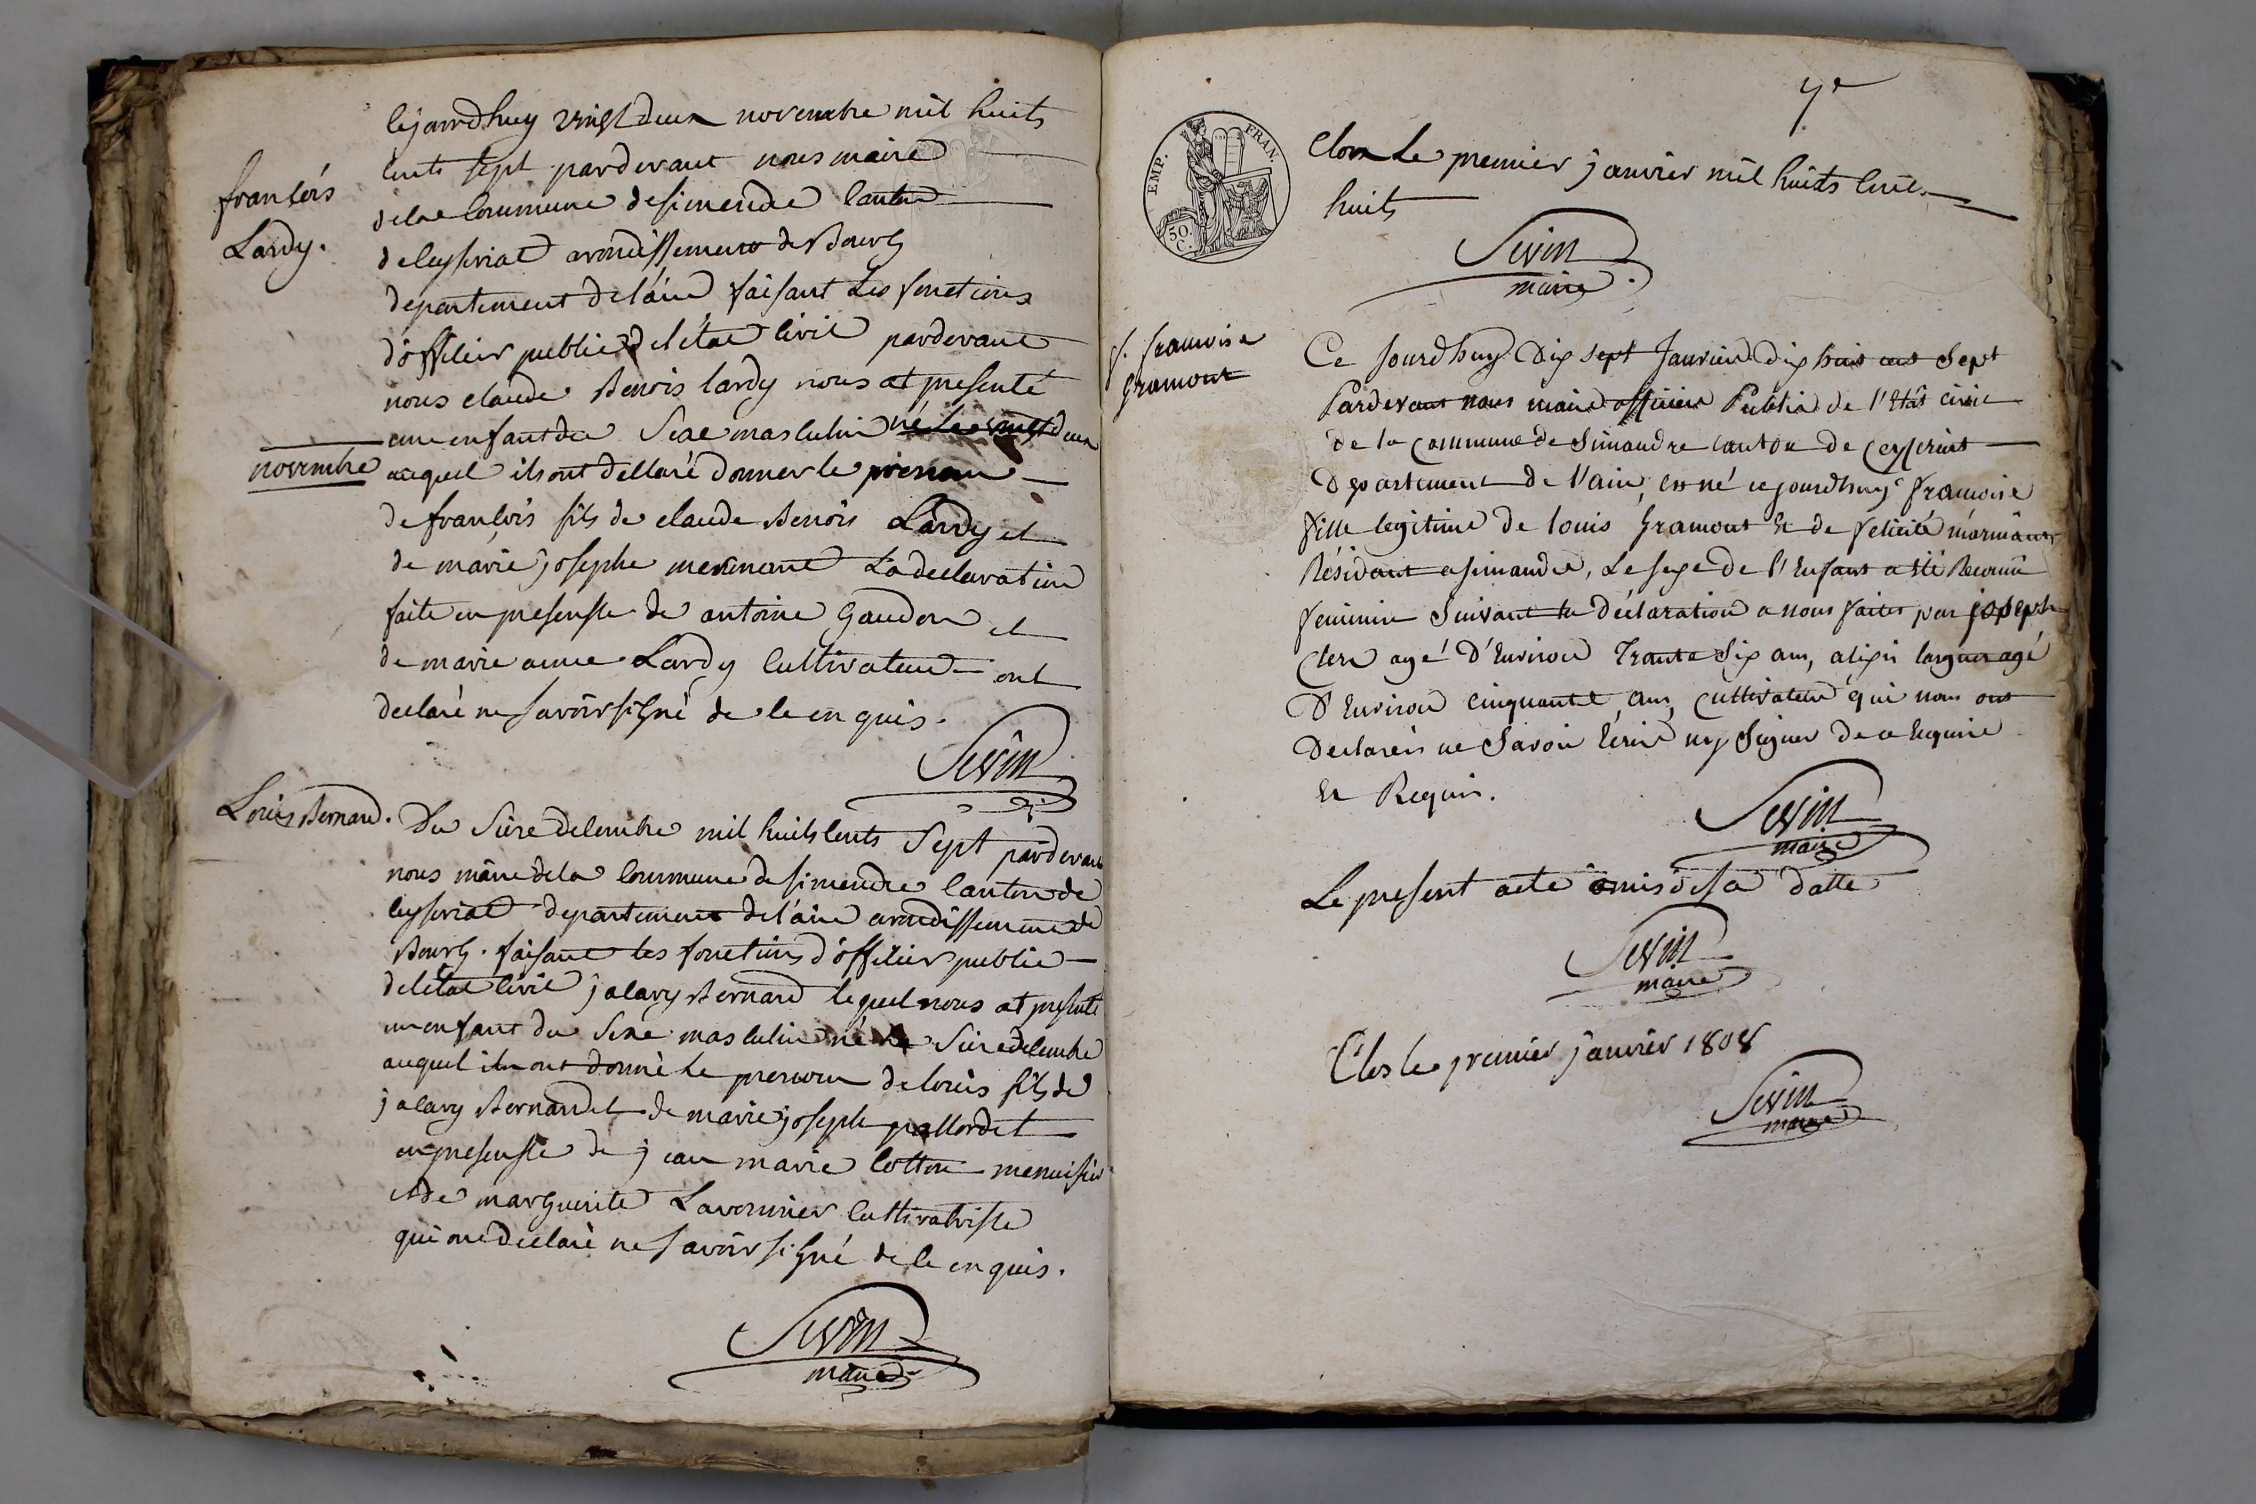 françois
Lardy.
novembre
cejourdhuy vingt deux novembre mil huits
cents sept pardevant nous maire
dela Commune desimendre Canton
deCeyseriat arondissement de Bourg
departement deláin faisant Les fonctions
dófficier public deletat Civil pardevant
nous claude Benois lardy nous at presenté
un enfant du Sexe masculin né le vingt deux
auquel ils ont declaré donner le prenom
de françois fils de claude Benois Lardy et
de marie josephe mermant La declaration
faite en presensse de antoine Gaudon et
de marie anne Lardy Cultivateur ont
declaré ne savoir signé de ce enquis.
Sevin
Louis Bernard.
Du Sixe decembre mil huits cents Sept pardevant
nous maire dela Commune de simendre Canton de
Ceyseriat departement deláin arondissement de
Bourg. faisant les fonctions dófficier public
deletat Civil jalavy Bernard lequel nous at presenté
un enfant du Sexe masculin né le Sixe decembre
auquel ils ont donné le prenom de louis fils de
jalavy Bernard et de marie joseph pallordet
en presensse de jean marie Cotton menuisier
et de marguerite Lavornier Cultivatrisse
qui ont declaré ne savoir signé de ce enquis.
Sevin
maire
EMP. FRAN.
50.
C.
Clos Le premier janvier mil huits Cent
huits
Sevin
maire
f. francoise
Gramont
Ce Jourdhuy Dix sept Janvier dix huit cent Sept
Pardevant nous maire officier Public de l'Etât civil
de la Commune de Simandre canton de Ceyseriat
Département de l'ain, est né ce jourdhuy francoise
fille legitime de louis Gramont Et de felicité mormant
Résidant a simandre, Le sexe de l'Enfant a été Reconnu
feminin Suivant la déclaration a nous faites par joseph
Clerc agé D'Environ Trante Six ans, alixis larguer agé
D'Environ cinquante ans, Cultivateur qui nous ont
Declarés ne Savoir Ecrire ny Signer de ce Enquire
Et Requis.
Sevin
maire
Le present acte omis à sa datte
Sevin
maire
Clos le premier janvier 1808
Sevin
maire